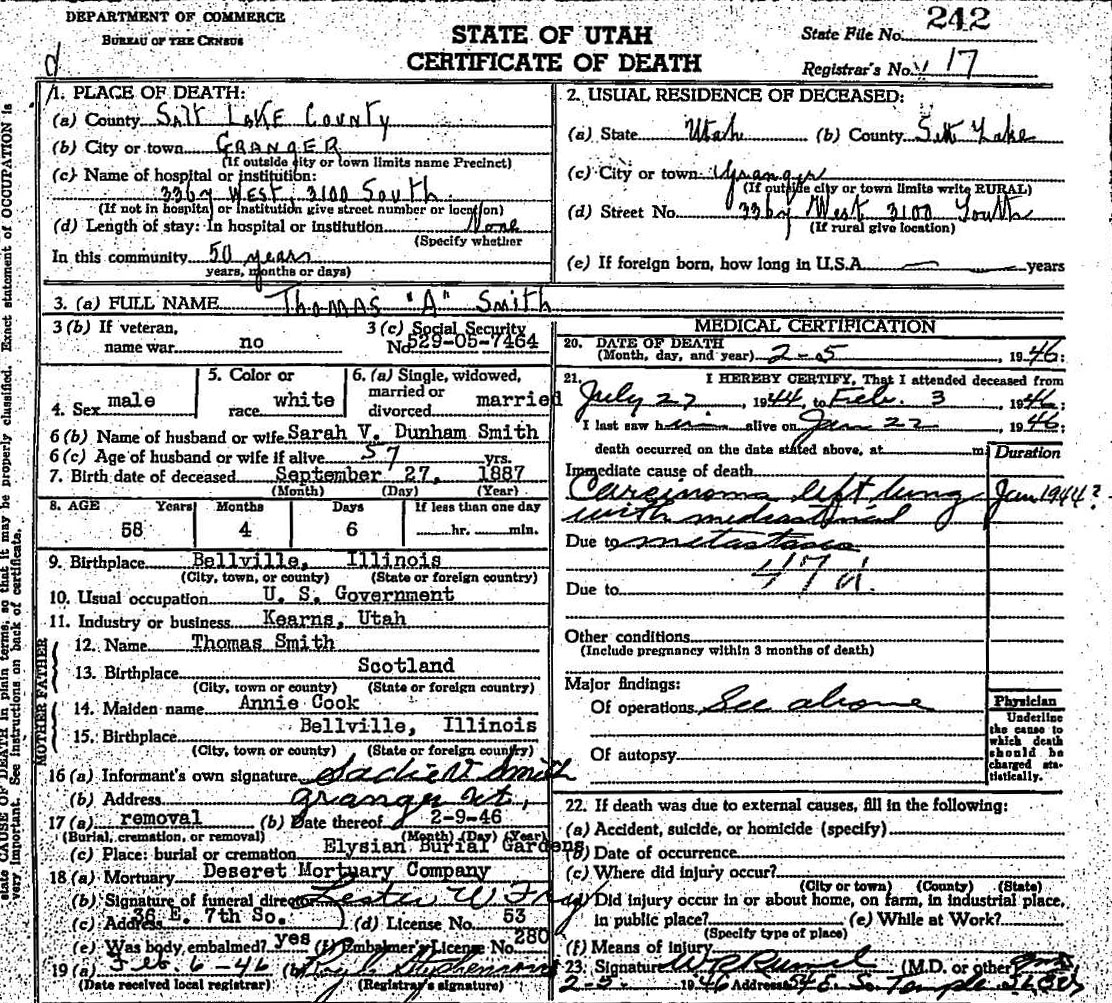 DEPARTMENT OF COMMERCE
BUREAU OF THE CENSUS
STATE OF UTAH
CERTIFICATE OF DEATH
State File No. 242
Registrar's No. 17
d
1. PLACE OF DEATH:
(a) County Salt Lake County
(b) City or town GRANGER
(If outside city or town limits name Precinct)
(c) Name of hospital or institution:
3367 West 3100 South
(If not in hospital or institution give street number or location)
(d) Length of stay: In hospital or institution None
(Specify whether
In this community 50 years
years, months or days)
2. USUAL RESIDENCE OF DECEASED:
(a) State Utah (b) County Salt Lake
(c) City or town Granger
(If outside city or town limits write RURAL)
(d) Street No. 3367 West 3100 South
(If rural give location)
(e) If foreign born, how long in U.S.A. years
3. (a) FULL NAME Thomas "A" Smith
3 (b) If veteran,
name war no
3 (c) Social Security
No. 529-05-7464
4. Sex male
5. Color or
race white
6. (a) Single, widowed,
married or
divorced married
6 (b) Name of husband or wife Sarah V. Dunham Smith
6 (c) Age of husband or wife if alive 57 yrs.
7. Birth date of deceased September 27, 1887
(Month) (Day) (Year)
8. AGE Years Months Days If less than one day
58 4 6 hr. min.
9. Birthplace Bellville, Illinois
(City, town, or county) (State or foreign country)
10. Usual occupation U. S. Government
11. Industry or business Kearns, Utah
FATHER
12. Name Thomas Smith
13. Birthplace Scotland
(City, town or county) (State or foreign country)
MOTHER
14. Maiden name Annie Cook
15. Birthplace Bellville, Illinois
(City, town or county) (State or foreign country)
16 (a) Informant's own signature Sadie V Smith
(b) Address Granger Ut.
17 (a) removal (b) Date thereof 2-9-46
(Burial, cremation, or removal) (Month) (Day) (Year)
(c) Place: burial or cremation Elysian Burial Gardens
18 (a) Mortuary Deseret Mortuary Company
(b) Signature of funeral director Lester W
(c) Address 36 E. 7th So. (d) License No. 53
(e) Was body embalmed? yes (f) Embalmer's License No. 280
19 (a) Feb. 6-46 (b) Stephenson
(Date received local registrar) (Registrar's signature)
MEDICAL CERTIFICATION
20. DATE OF DEATH
(Month, day, and year) 2-5, 1946:
21. I HEREBY CERTIFY, That I attended deceased from
July 27, 1944, to Feb. 3, 1946;
I last saw him alive on Jan 22, 1946;
death occurred on the date stated above, at m.
Duration
Immediate cause of death
Carcinoma left lung Jan 1944?
with mediastinal
Due to metastasis
47d.
Due to
Other conditions
(Include pregnancy within 3 months of death)
Major findings:
Of operations See above
Of autopsy
Physician
Underline
the cause to
which death
should be
charged sta-
tistically.
22. If death was due to external causes, fill in the following:
(a) Accident, suicide, or homicide (specify)
(b) Date of occurrence
(c) Where did injury occur?
(City or town) (County) (State)
Did injury occur in or about home, on farm, in industrial place,
in public place? (e) While at Work?
(Specify type of place)
(f) Means of injury
23. Signature W R Rumel (M.D. or other
2-5- 1946 Address 548 E. So. Temple
state CAUSE OF DEATH in plain terms, so that it may be properly classified. Exact statement of OCCUPATION is
very important. See instructions on back of certificate.